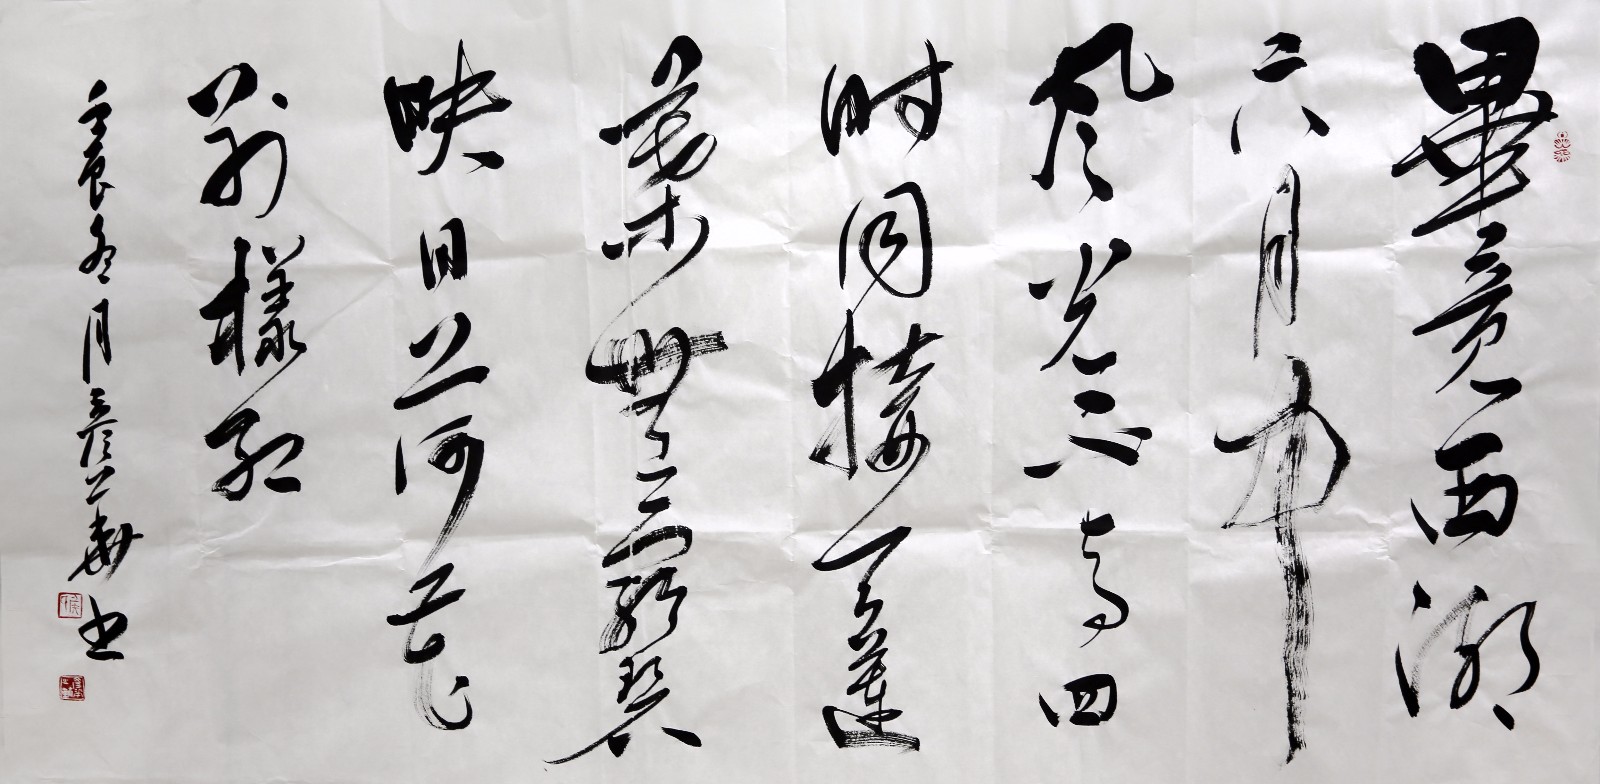 畢竟西湖
六月中
风光不与四
时同接天蓮
葉無窮碧
映日荷花
别樣紅
壬辰冬月书